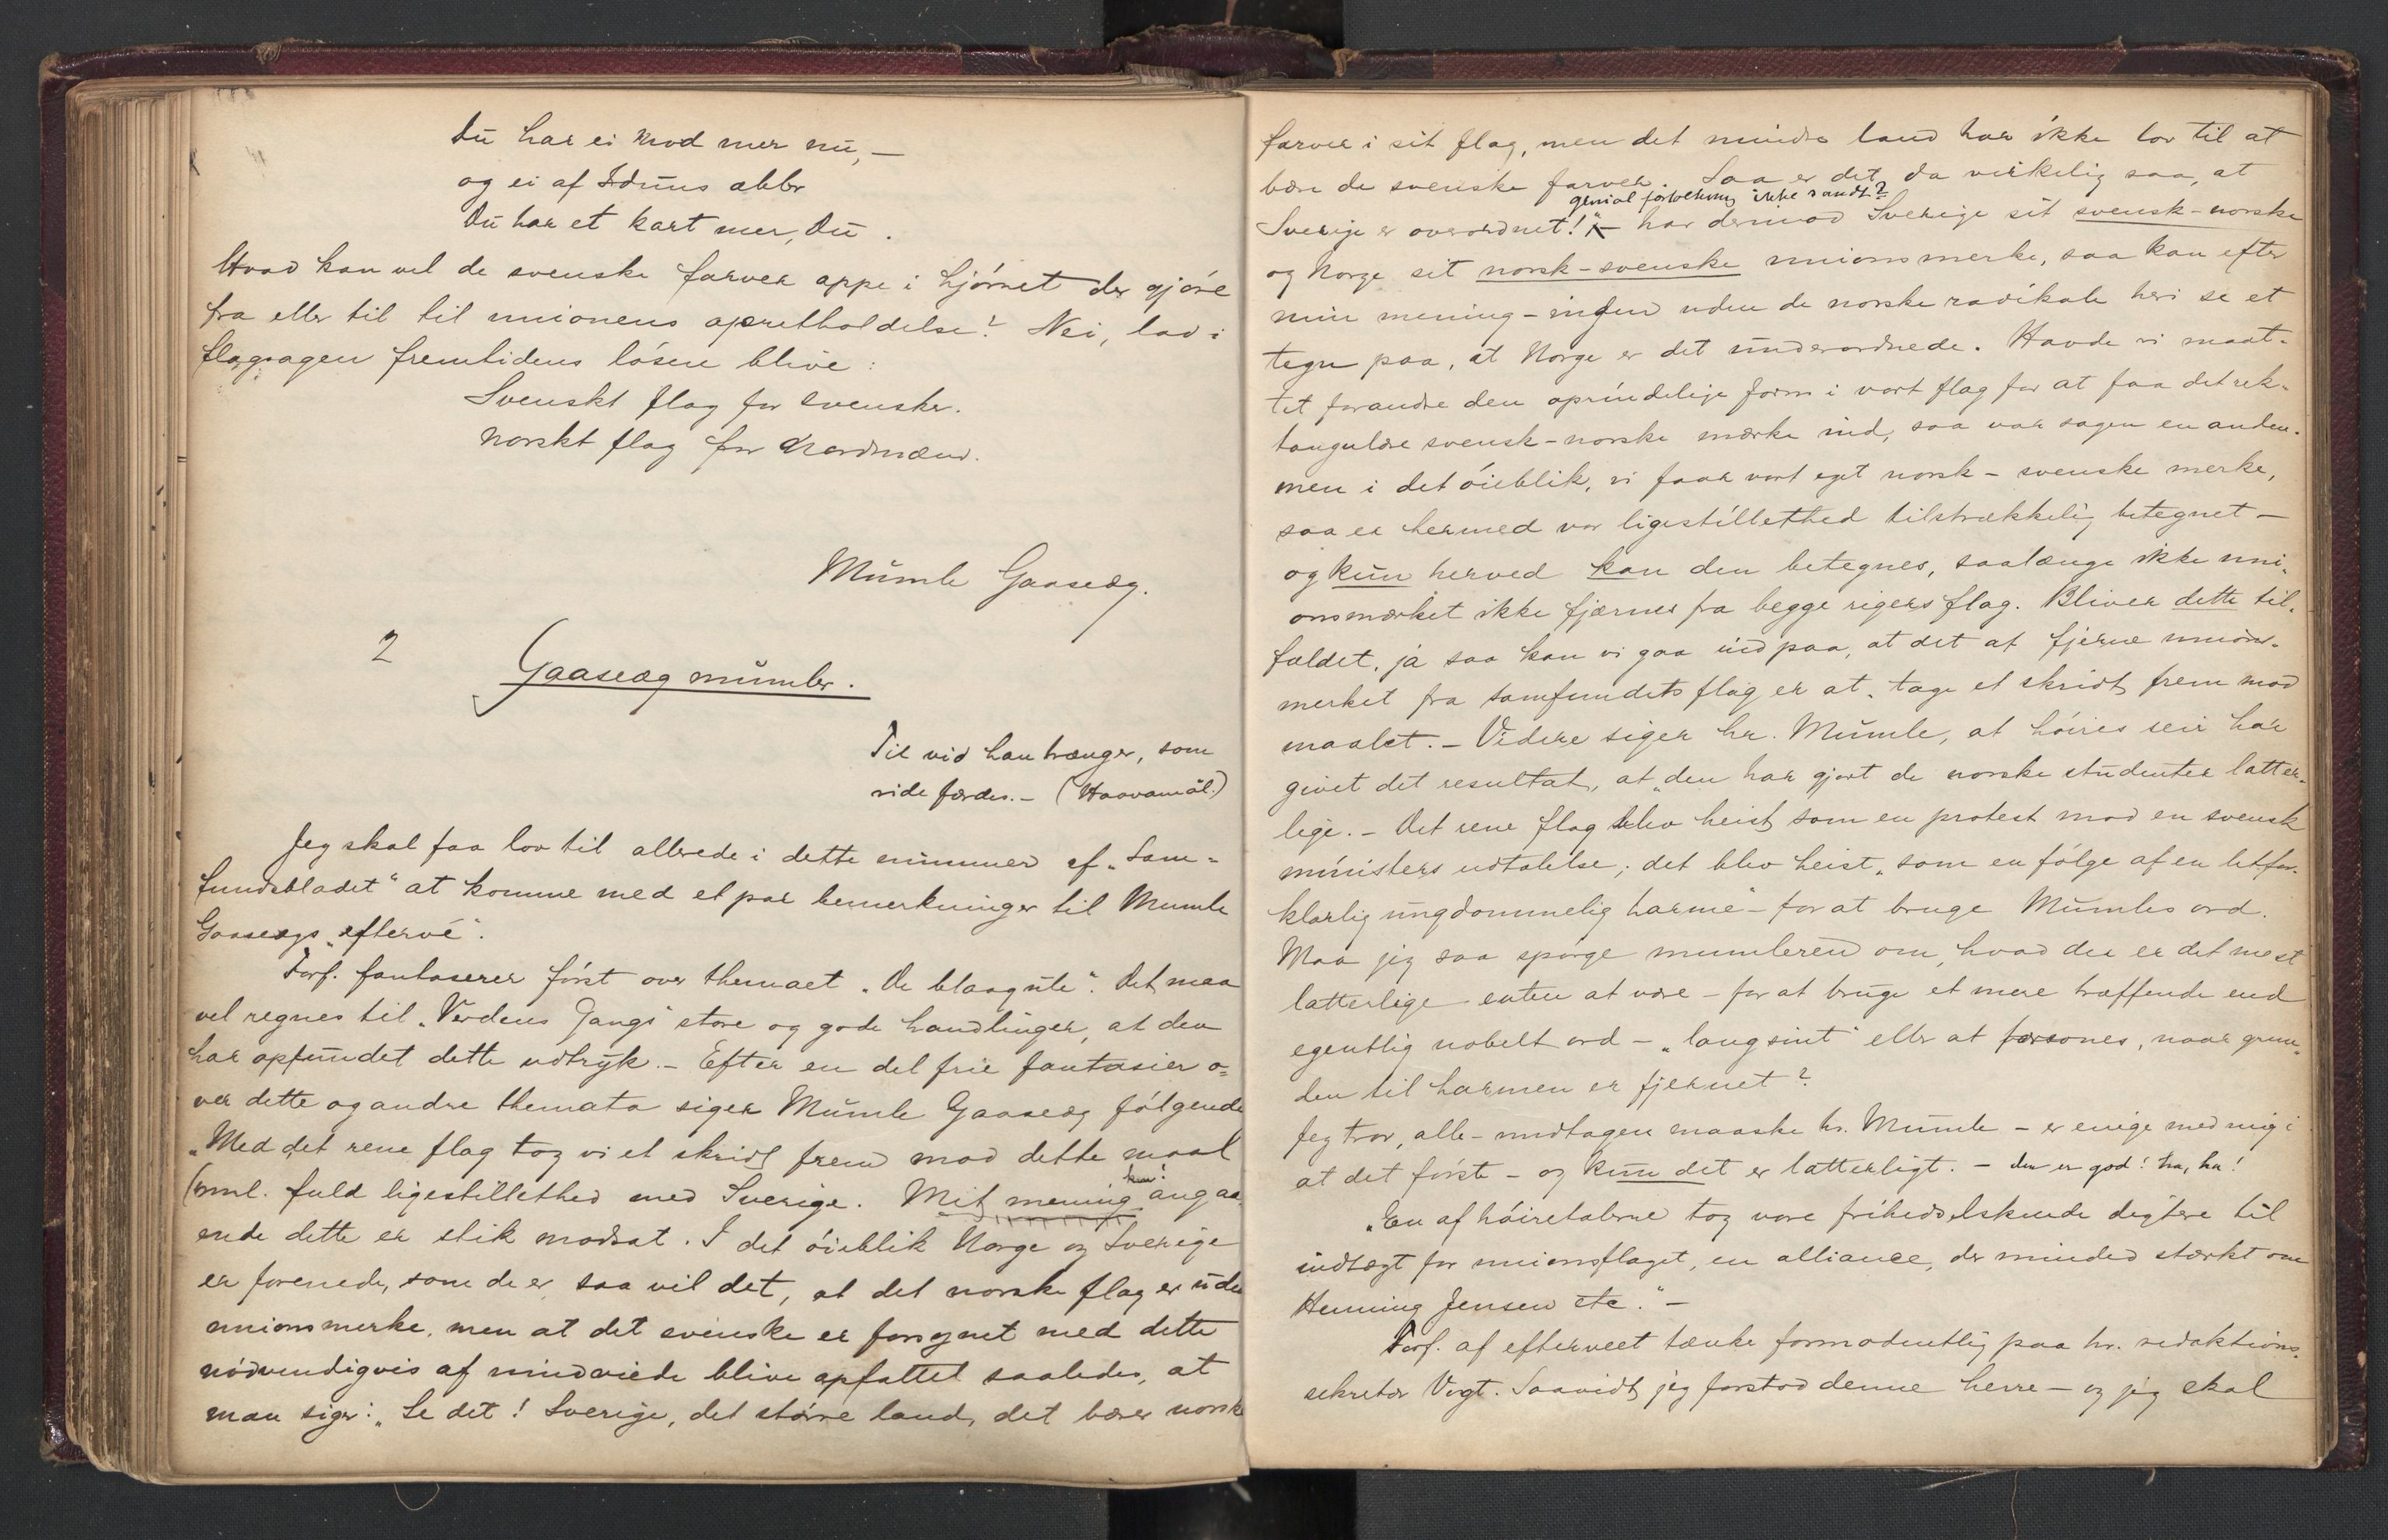 Du har ei mod mer nu, —
og ei af Iduns æbler
Du har et kart mer, Du.
Hvad kan vel de svenske farver oppe i hjørnet der gjøre
fra eller til til unionens opretholdelse? Nei, lad i
flagsagen fremtidens løsen blive:
Svenskt flag for svensker.
norskt flag for Nordmænd.
Mumle Gaaseæg.
2
Gaaseæg mumler.
Tit vid han trænger, som
vide færdes. — (Haavamál.)
Jeg skal faa lov til allerede i dette nummer af „Sam-
fundsbladet" at komme med et par bemerkninger til Mumle
Gaaseægs „eftervé".
Forf. fantaserer først over themaet „De blaagule". Det maa
vel regnes til „Verdens Gangs" store og gode handlinger, at den
har opfundet dette udtryk. — Efter en del frie fantasier o-
ver dette og andre themata siger Mumle Gaaseæg følgende
„Med det rene flag tog vi et skridt frem mod dette maal
(nml. fuld ligestillethed med Sverige. Mit mening hm! angaa-
ende dette er stik modsat. I det øieblik Norge og Sverige
er forenede, som de er, saa vil det, at det norske flag er uden
unionsmerke, men at det svenske er forsynet med dette
nødvendigvis af mindviede blive opfattet saaledes, at
man siger: „Se det! Sverige, det større land, det bærer norske
farver i sit flag, men det mindre land har ikke lov til at
bære de svenske farver. Saa er det da virkelig saa, at
genial fortolkning ikke sandt?
Sverige er overordnet!" — har dermod Sverige sit svensk-norske
og Norge sit norsk-svenske unionsmerke, saa kan efter
min mening — ingen uden de norske radikale heri se et
tegn paa, at Norge er det underordnede. Havde vi maat-
tet forandre den oprindelige form i vort flag for at faa det rek-
tangulære svensk-norske mærke ind, saa var sagen en anden.
men i det øieblik, vi faar vort eget norsk-svenske merke,
saa er hermed vor ligestillethed tilstrækkelig betegnet —
og kun herved kan den betegnes, saalænge ikke uni-
onsmærket ikke fjærnes fra begge rigers flag. Bliver dette til-
fældet, ja saa kan vi gaa ind paa, at det at fjerne unions-
merket fra samfundets flag er at „tage et skridt frem mod
maalet. — Videre siger hr. Mumle, at høires seir har
givet det resultat, at „den har gjort de norske studenter latter-
lige. — Det rene flag blev heist som en protest mod en svensk
ministers udtalelse; det blev heist „som en følge af en letfor-
klarlig ungdommelig harme" — for at bruge Mumles ord.
Maa jeg saa spørge mumleren om, hvad der er det mest
latterlige — enten at være — for at bruge et mere træffende end
egentlig nobelt ord — „langsint" eller at forsones, naar grun-
den til harmen er fjernet?
Jeg tror, alle — undtagen maaske hr. Mumle — er enige med mig i
at det første — og kun det er latterligt. — den er god! ha, ha!
„En af høiretalerne tog vore frihedselskende digtere til
indtægt for unionsflaget, en alliance, der minded stærkt om
Henning Jensen etc." —
Forf. af efterveet tænke formodentlig paa hr. redaktions-
sekretær Vogt. Saavidt jeg forstod denne herre — og jeg skal